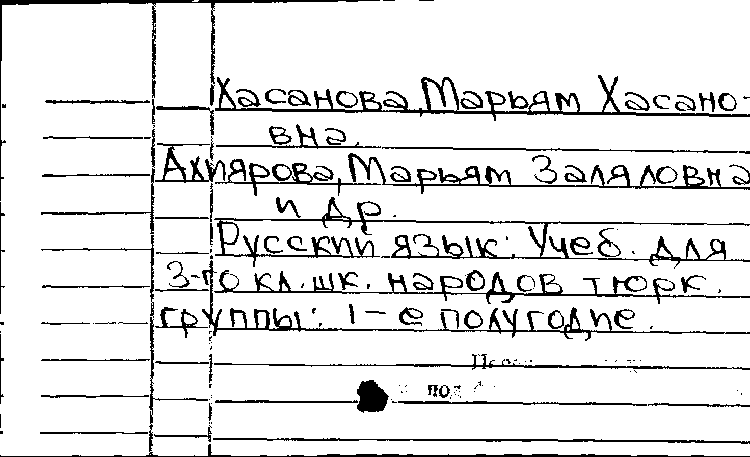 Хасанова, Марьям Хасано-
вна.
Ахиярова, Марьям Заляловна
и др.
Русский язык: Учеб. для
3-го кл. шк. народов тюрк.
группы: 1-е полугодие.